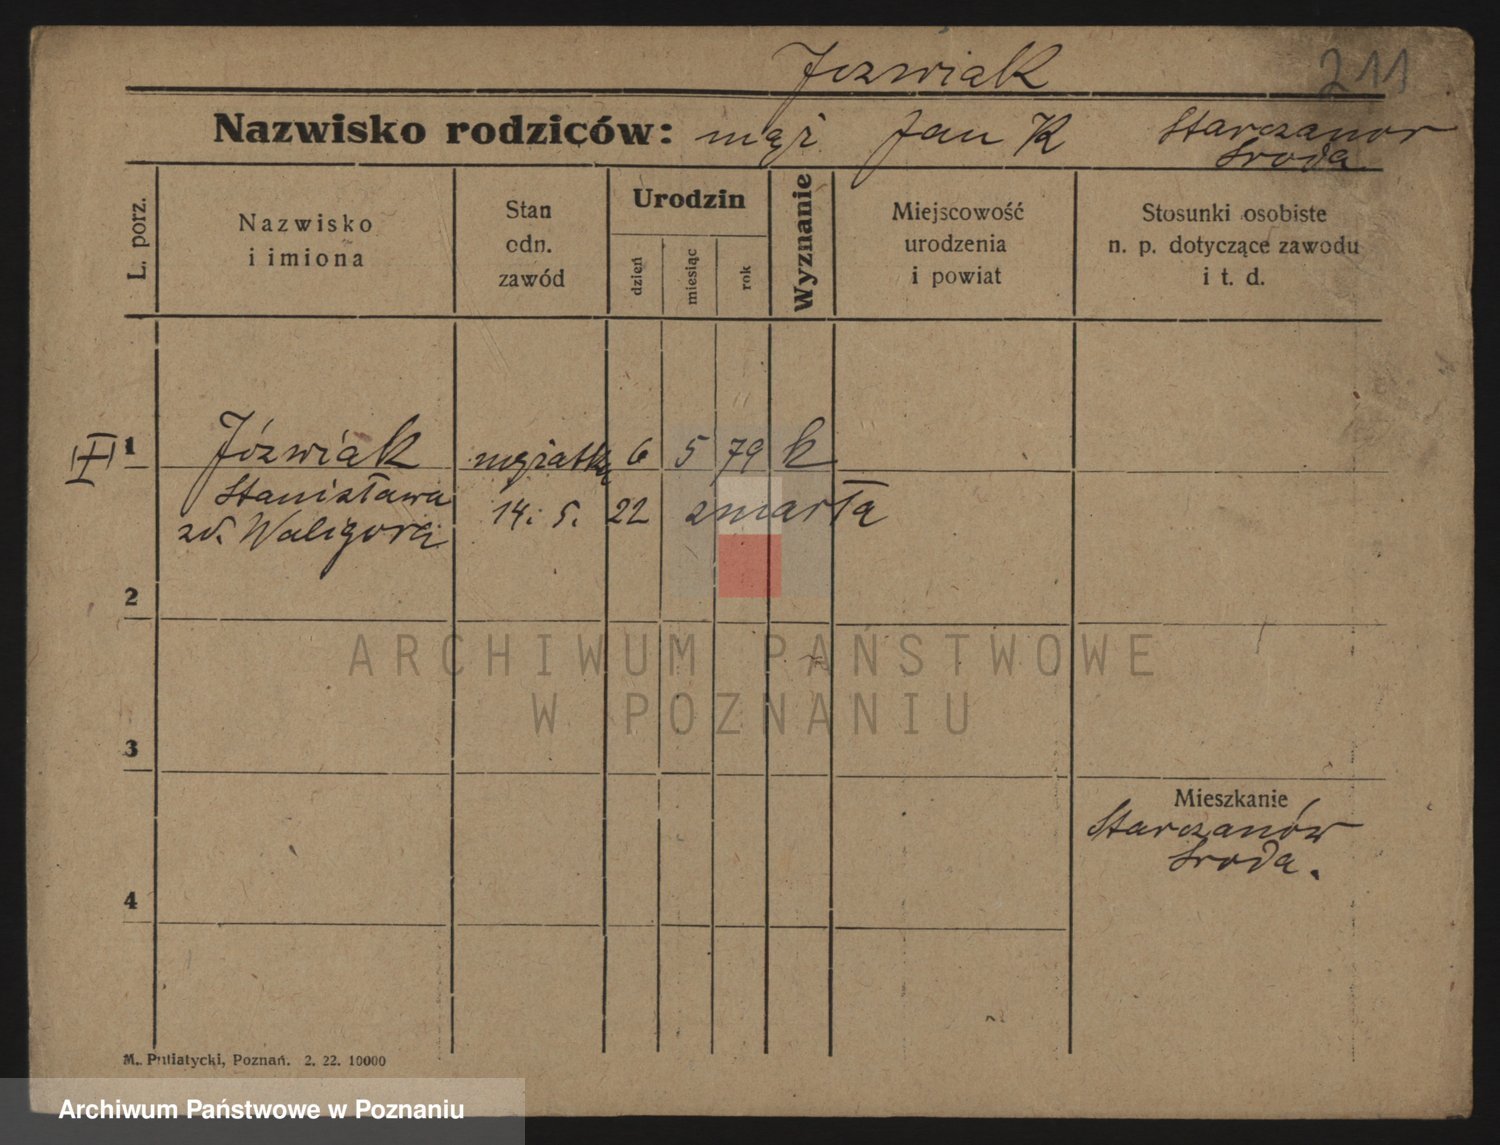 Jozwiak 211
Nazwisko rodziców: mąż Jan K Starczanow
Sroda
L. porz.
Nazwisko
i imiona
Stan
odn.
zawód
Urodzin
dzień
miesiąc
rok
Wyznanie
Miejscowość
urodzenia
i powiat
Stosunki osobiste
n. p. dotyczące zawodu
i t. d.
1 Jóźwiak mężatka 6 5 79 k
Stanisława 14. 5. 22 zmarła
zd. Waligora
2
3
Mieszkanie
Starczanów
Sroda.
4
M. Putiatycki, Poznań. 2. 22. 10000
ARCHIWUM PAŃSTWOWE
W POZNANIU
Archiwum Państwowe w Poznaniu